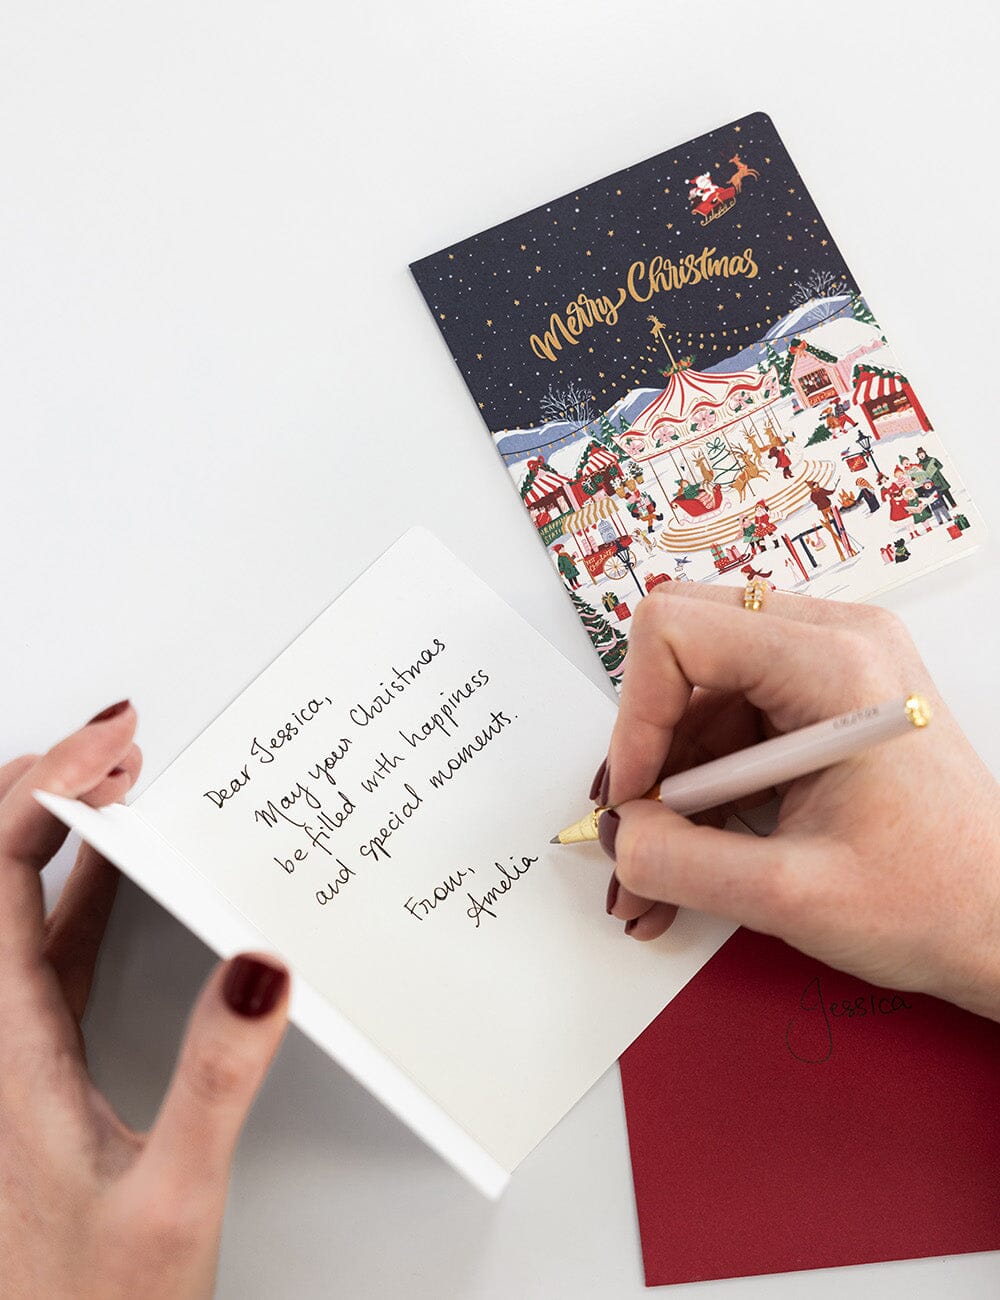 Merry Christmas
Dear Jessica,
May your Christmas
be filled with happiness
and special moments.
From,
Amelia
Jessica